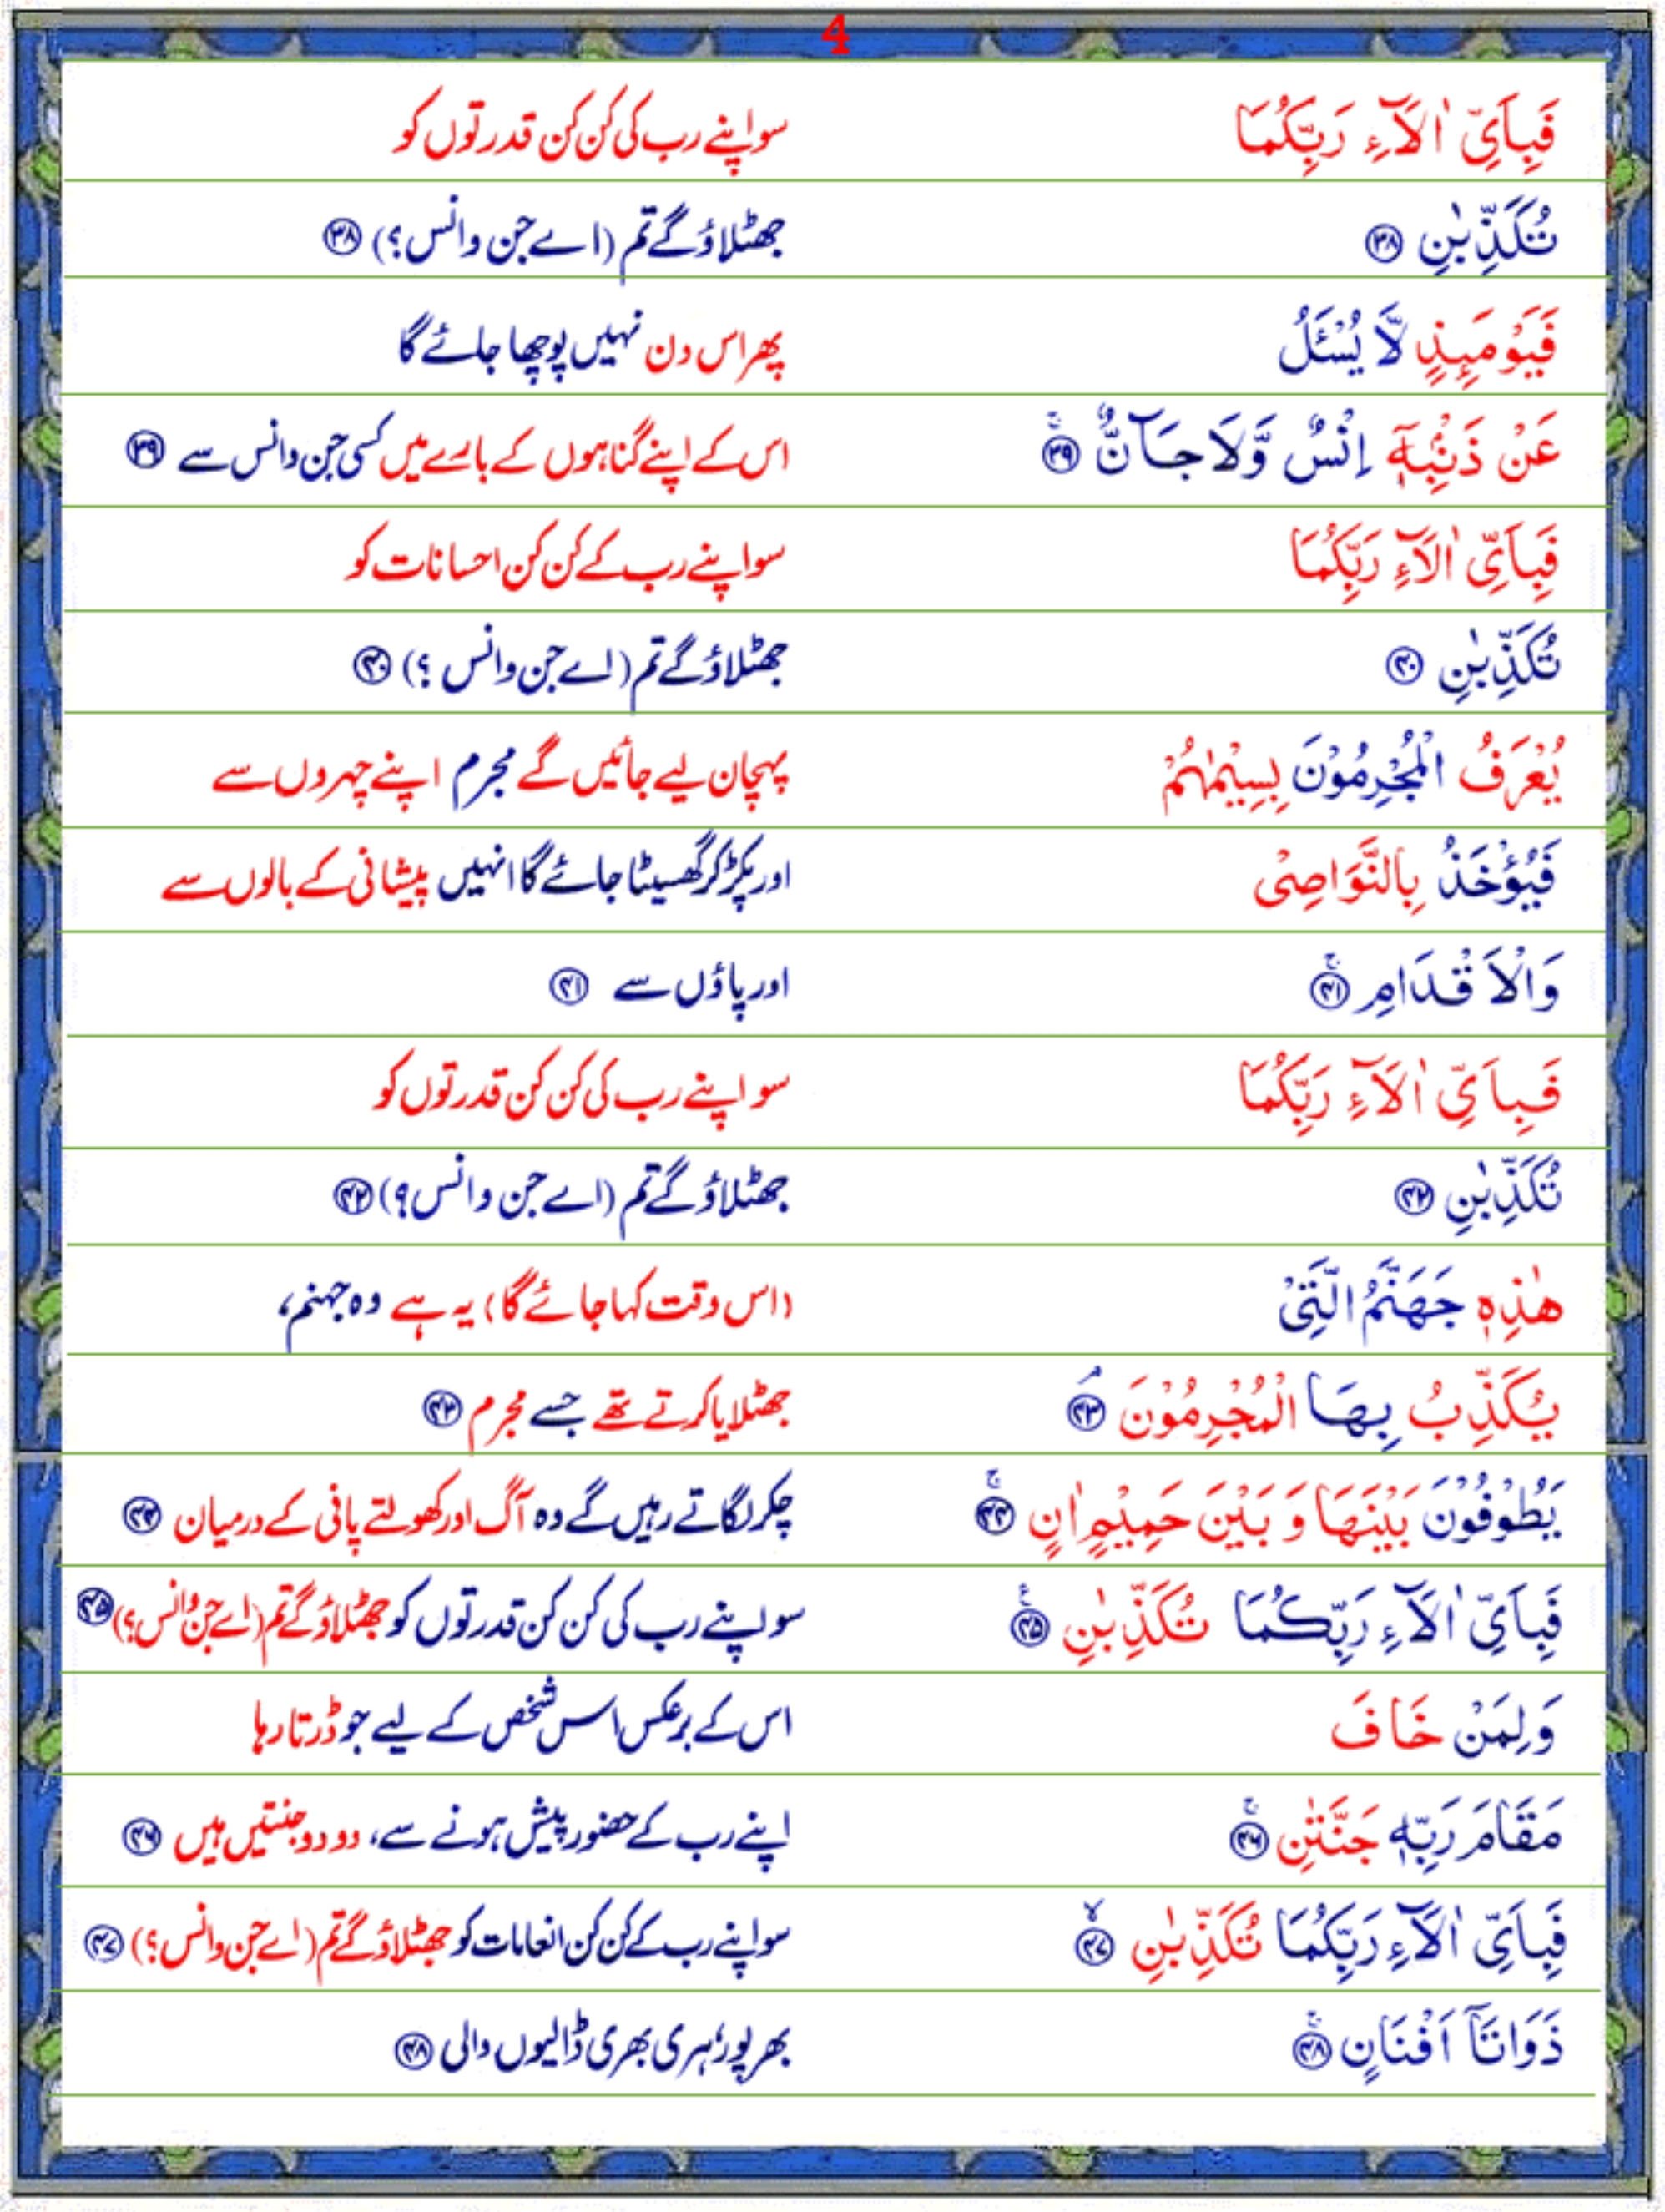 4
فَبِاَیِّ اٰلَآءِ رَبِّكُمَا سو اپنے رب کی کن کن قدرتوں کو
تُكَذِّبٰنِ ۳۸ جھٹلاؤ گے تم (اے جن وانس؟) ۳۸
فَیَوْمَىِٕذٍ لَّا یُسْـَٔلُ پھر اس دن نہیں پوچھا جائے گا
عَنْ ذَنْۢبِهٖۤ اِنْسٌ وَّلَا جَآنٌّ ۚ ۳۹ اس کے اپنے گناہوں کے بارے میں کسی جن وانس سے ۳۹
فَبِاَیِّ اٰلَآءِ رَبِّكُمَا سو اپنے رب کے کن کن احسانات کو
تُكَذِّبٰنِ ۴۰ جھٹلاؤ گے تم (اے جن وانس ؟) ۴۰
یُعْرَفُ الْمُجْرِمُوْنَ بِسِیْمٰىهُمْ پہچان لیے جائیں گے مجرم اپنے چہروں سے
فَیُؤْخَذُ بِالنَّوَاصِیْ اور پکڑ کر گھسیٹا جائے گا انہیں پیشانی کے بالوں سے
وَالْاَقْدَامِ ۚ ۴۱ اور پاؤں سے ۴۱
فَبِاَیِّ اٰلَآءِ رَبِّكُمَا سو اپنے رب کی کن کن قدرتوں کو
تُكَذِّبٰنِ ۴۲ جھٹلاؤ گے تم (اے جن وانس؟) ۴۲
هٰذِهٖ جَهَنَّمُ الَّتِیْ (اس وقت کہا جائے گا) یہ ہے وہ جہنم،
یُكَذِّبُ بِهَا الْمُجْرِمُوْنَ ۘ ۴۳ جھٹلایا کرتے تھے جسے مجرم ۴۳
یَطُوْفُوْنَ بَیْنَهَا وَ بَیْنَ حَمِیْمٍ اٰنٍ ۚ ۴۴ چکر لگاتے رہیں گے وہ آگ اور کھولتے پانی کے درمیان ۴۴
فَبِاَیِّ اٰلَآءِ رَبِّكُمَا تُكَذِّبٰنِ ۠ ۴۵ سو اپنے رب کی کن کن قدرتوں کو جھٹلاؤ گے تم (اے جن وانس؟) ۴۵
وَلِمَنْ خَافَ اس کے برعکس اس شخص کے لیے جو ڈرتا رہا
مَقَامَ رَبِّهٖ جَنَّتٰنِ ۚ ۴۶ اپنے رب کے حضور پیش ہونے سے، دو دو جنتیں ہیں ۴۶
فَبِاَیِّ اٰلَآءِ رَبِّكُمَا تُكَذِّبٰنِ ۙ ۴۷ سو اپنے رب کے کن کن انعامات کو جھٹلاؤ گے تم (اے جن وانس؟) ۴۷
ذَوَاتَاۤ اَفْنَانٍ ۚ ۴۸ بھرپور، ہری بھری ڈالیوں والی ۴۸